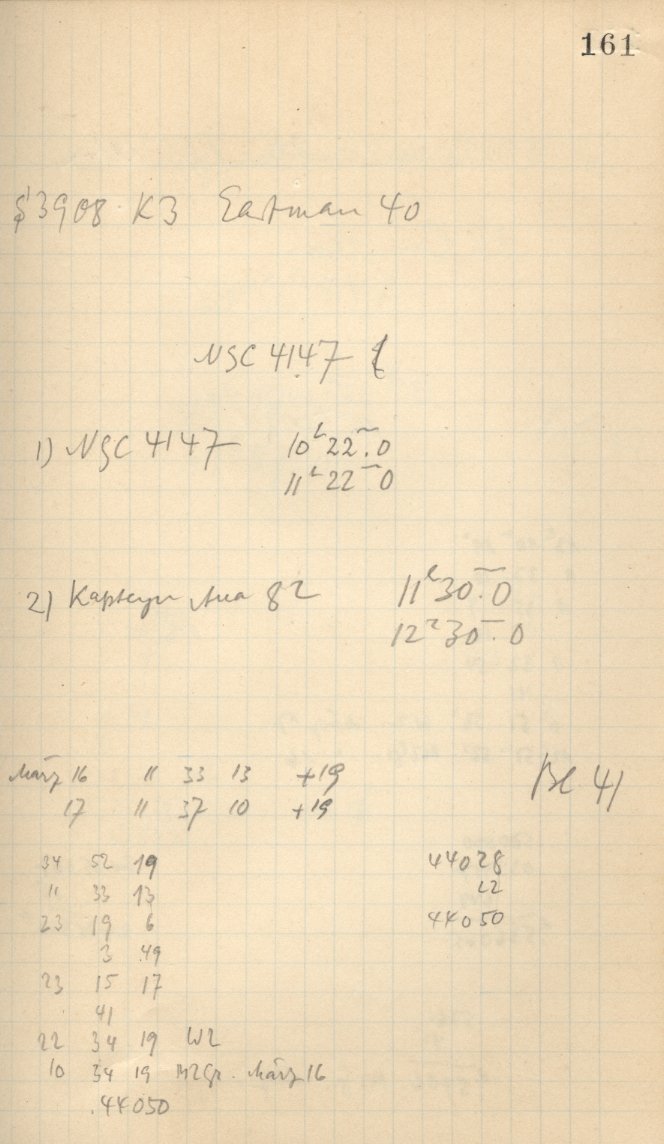 161
$3908 K3 Eastman 40
NGC 4147
1) NGC 4147 10ʰ22ᵐ.0
11ʰ22ᵐ.0
2) Kapteyn Area 82 11ʰ30ᵐ.0
12ʰ30ᵐ.0
März 16 11 33 13 +19
17 11 37 10 +19
Be 41
34 52 19 44028
11 33 13 22
23 19 6 44050
3 49
23 15 17
41
22 34 19 WZ
10 34 19 MZGr. März 16
.44050